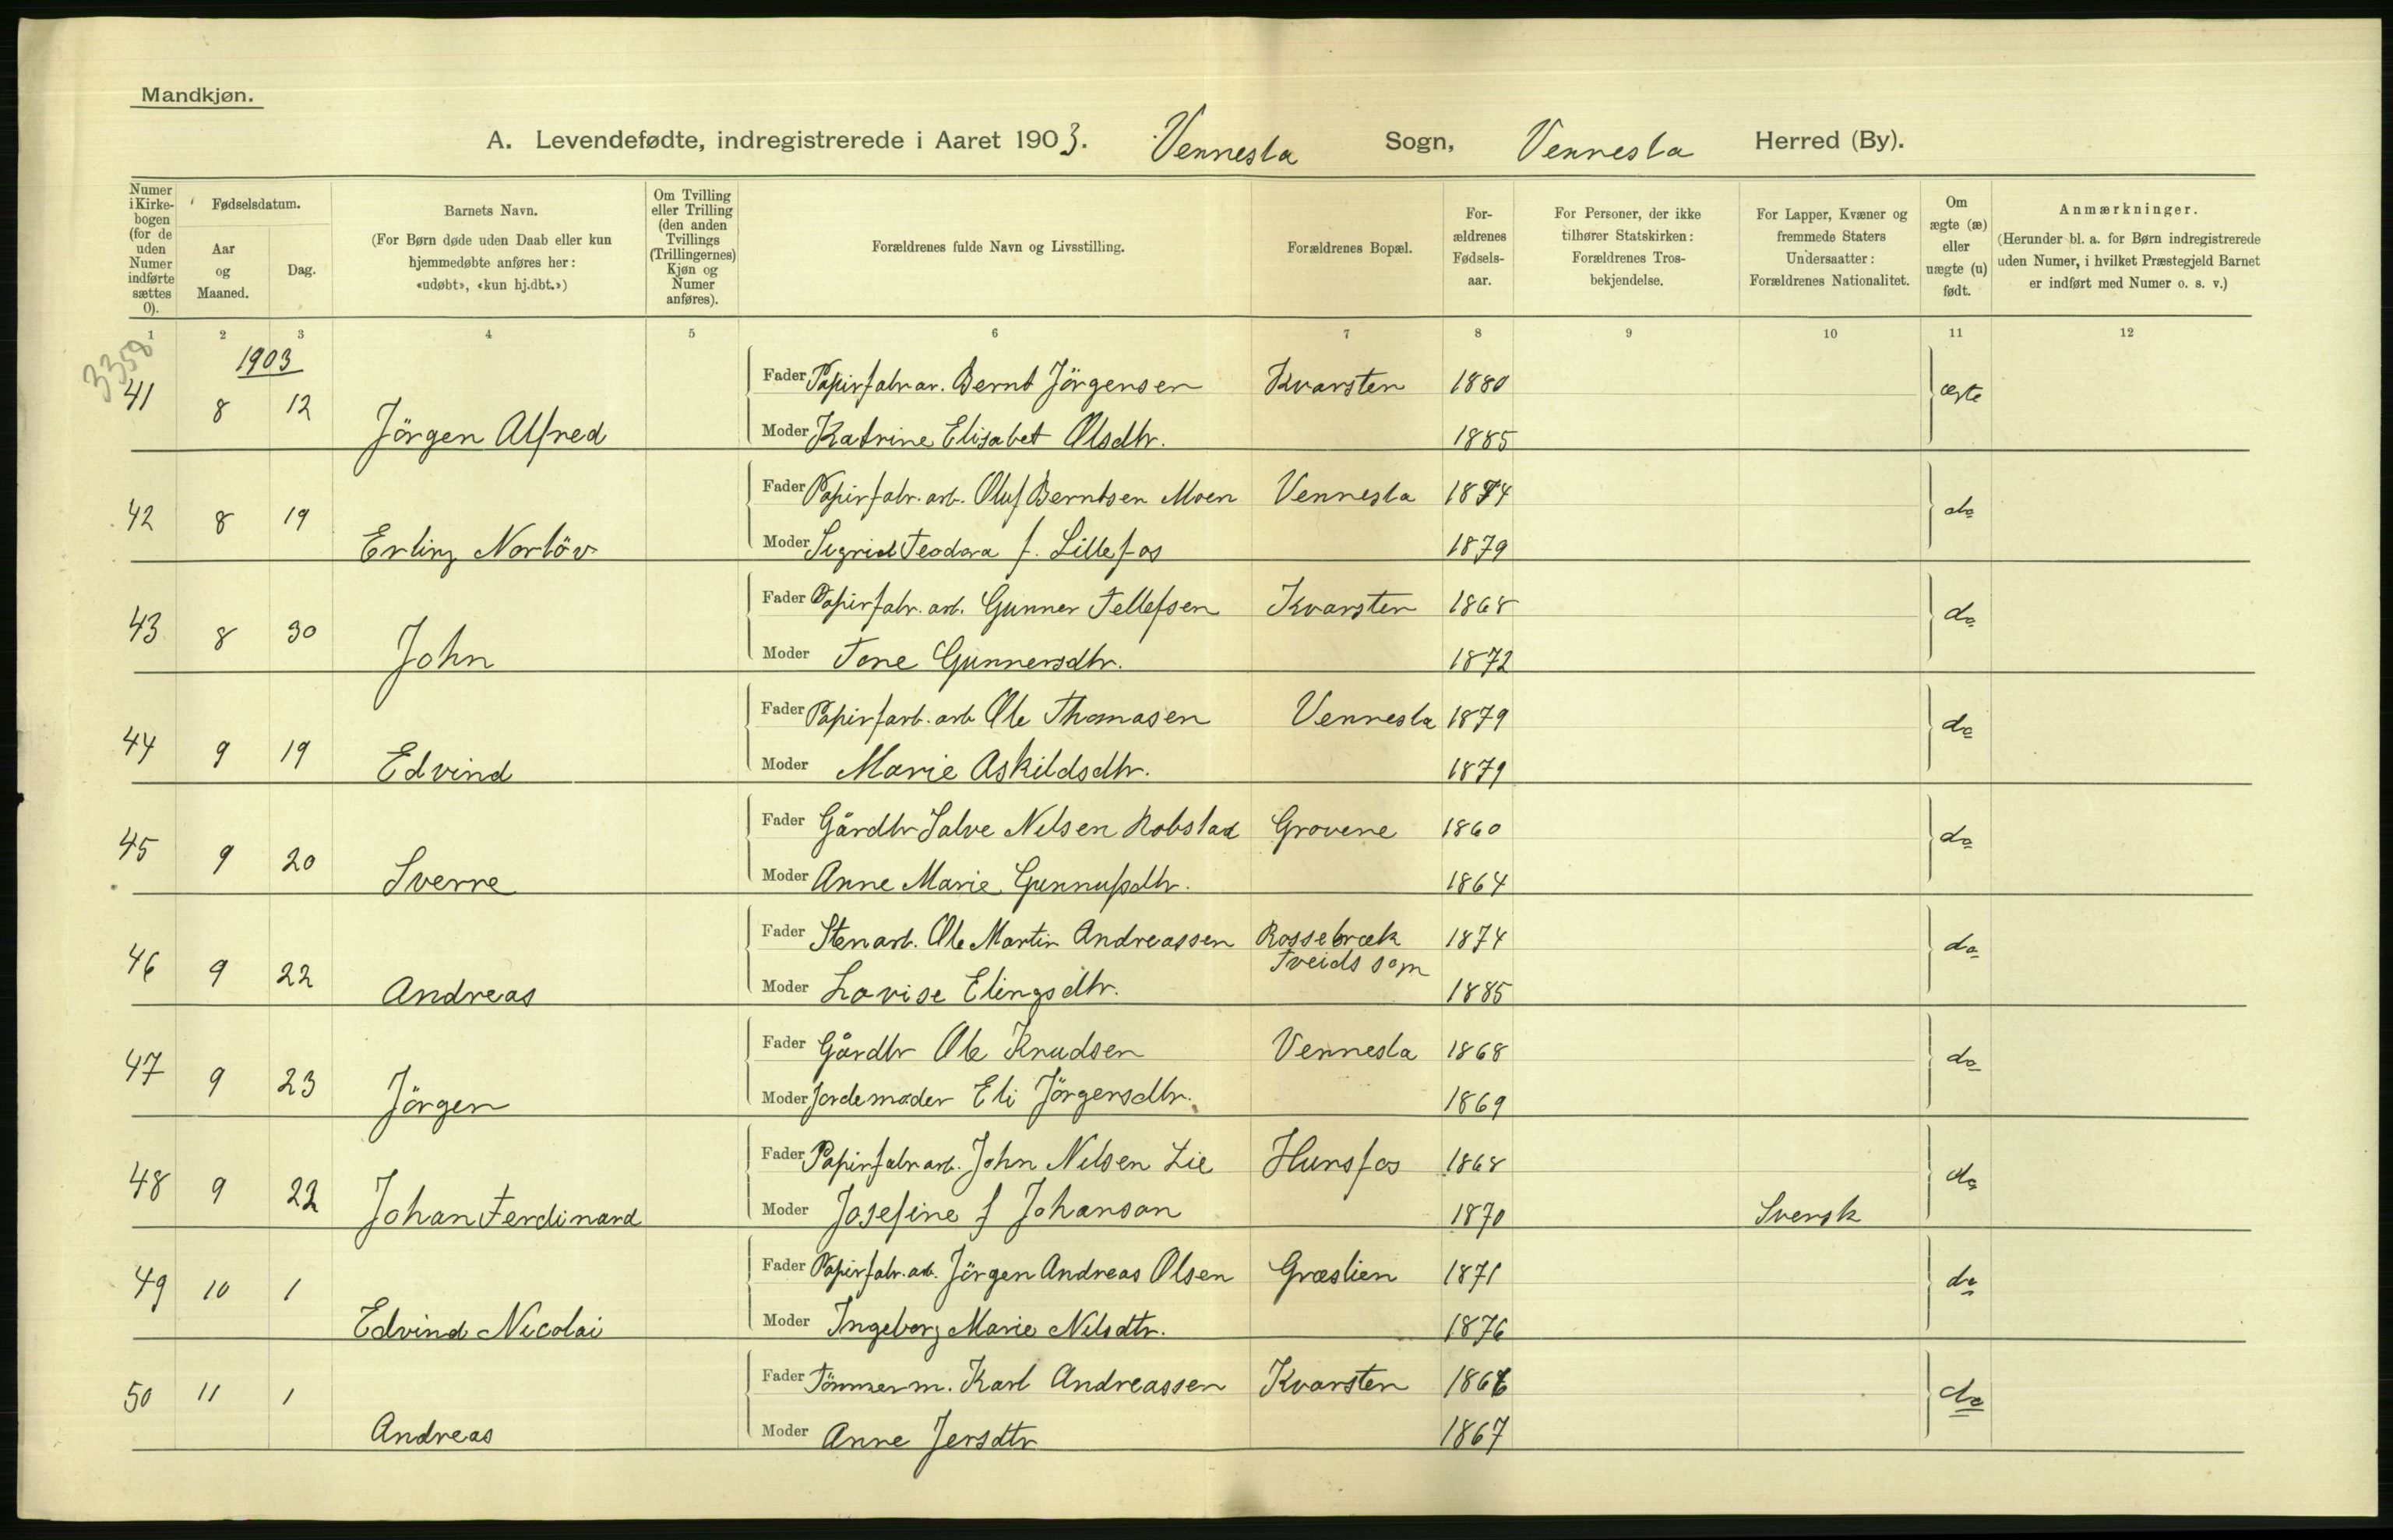 Mandkjøn.
A. Levendefødte, indregistrerede i Aaret 1903. Vennesla Sogn, Vennesla Herred (By).
Numer i Kirkebogen (for de uden Numer indførte sættes 0).
Fødselsdatum.
Aar og Maaned.
Dag.
Barnets Navn.
(For Børn døde uden Daab eller kun hjemmedøbte anføres her: «udøbt», «kun hj.dbt.»)
Om Tvilling eller Trilling (den anden Tvillings (Trillingernes) Kjøn og Numer anføres).
Forældrenes fulde Navn og Livsstilling.
Forældrenes Bopæl.
Forældrenes Fødselsaar.
For Personer, der ikke tilhører Statskirken: Forældrenes Trosbekjendelse.
For Lapper, Kvæner og fremmede Staters Undersaatter: Forældrenes Nationalitet.
Om ægte (æ) eller uægte (u) født.
Anmærkninger.
(Herunder bl. a. for Børn indregistrerede uden Numer, i hvilket Præstegjeld Barnet er indført med Numer o. s. v.)
1 2 3 4 5 6 7 8 9 10 11 12
3358
1903
41 8 12 Jörgen Alfred
Fader Papirfabr ar. Bernt Jörgensen Kvarsten 1880 ægte
Moder Katrine Elisabet Olsdtr. 1885
42 8 19 Erling Norlöv
Fader Papirfabr. arb. Oluf Berntsen Moen Vennesla 1874 do
Moder Sigrid Teodora f. Lillefos 1879
43 8 30 John
Fader Papirfabr. arb. Gunner Tellefsen Kvarsten 1868 do
Moder Tone Gunnersdtr. 1872
44 9 19 Edvind
Fader Papirfarb. arb Ole Thomasen Vennesla 1879 do
Moder Marie Askildsdtr. 1879
45 9 20 Sverre
Fader Gårdbr Salve Nilsen Robstad Grovene 1860 do
Moder Anne Marie Gunnufsdtr. 1864
46 9 22 Andreas
Fader Stenarb. Ole Martin Andreassen Rossebræk 1874 do
Tveids sogn
Moder Lovise Elingsdtr. 1885
47 9 23 Jörgen
Fader Gårdbr Ole Knudsen Vennesla 1868 do
Moder Jordemoder Eli Jörgensdtr. 1869
48 9 22 Johan Ferdinand
Fader Papirfabr arb. John Nilsen Lie Hunsfos 1868 do
Moder Josefine f Johanson 1870 Svensk
49 10 1 Edvind Nicolai
Fader Papirfabr. arb. Jörgen Andreas Olsen Græslien 1871 do
Moder Ingeborg Marie Nilsdtr. 1876
50 11 1 Andreas
Fader Tömmerm. Karl Andreassen Kvarsten do
Moder Anne Jensdtr 1867